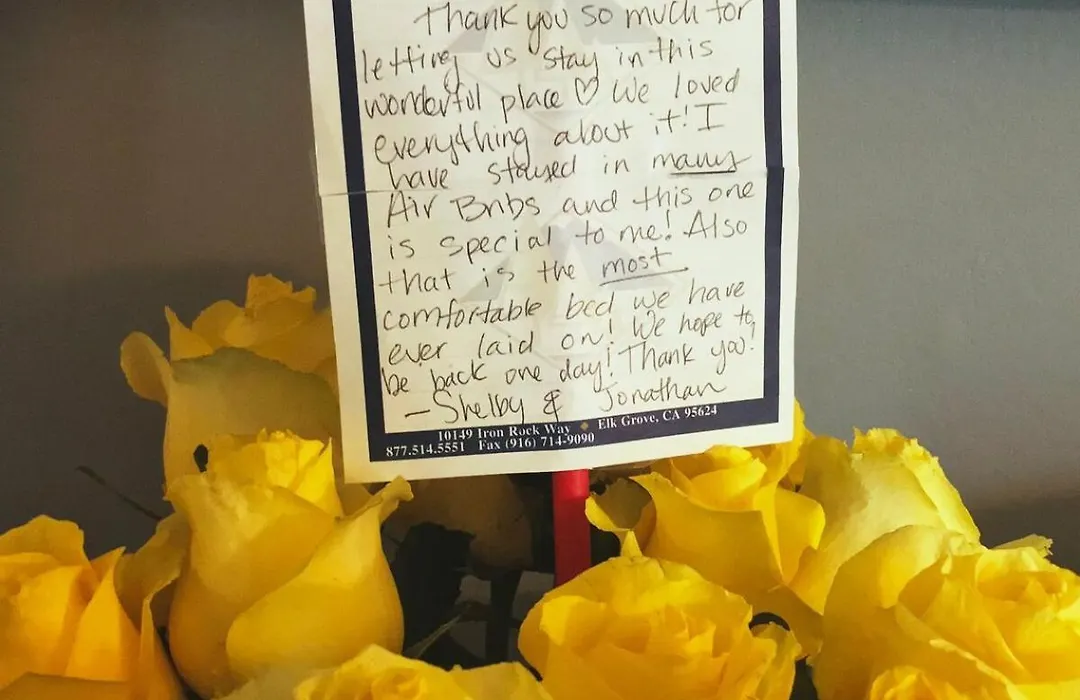 Thank you so much for
letting us stay in this
wonderful place ♡ We loved
everything about it! I
have stayed in many
Air Bnbs and this one
is special to me! Also
that is the most
comfortable bed we have
ever laid on! We hope to
be back one day! Thank you!
- Shelby & Jonathan
10149 Iron Rock Way ◆ Elk Grove, CA 95624
877.514.5551 Fax (916) 714-9090